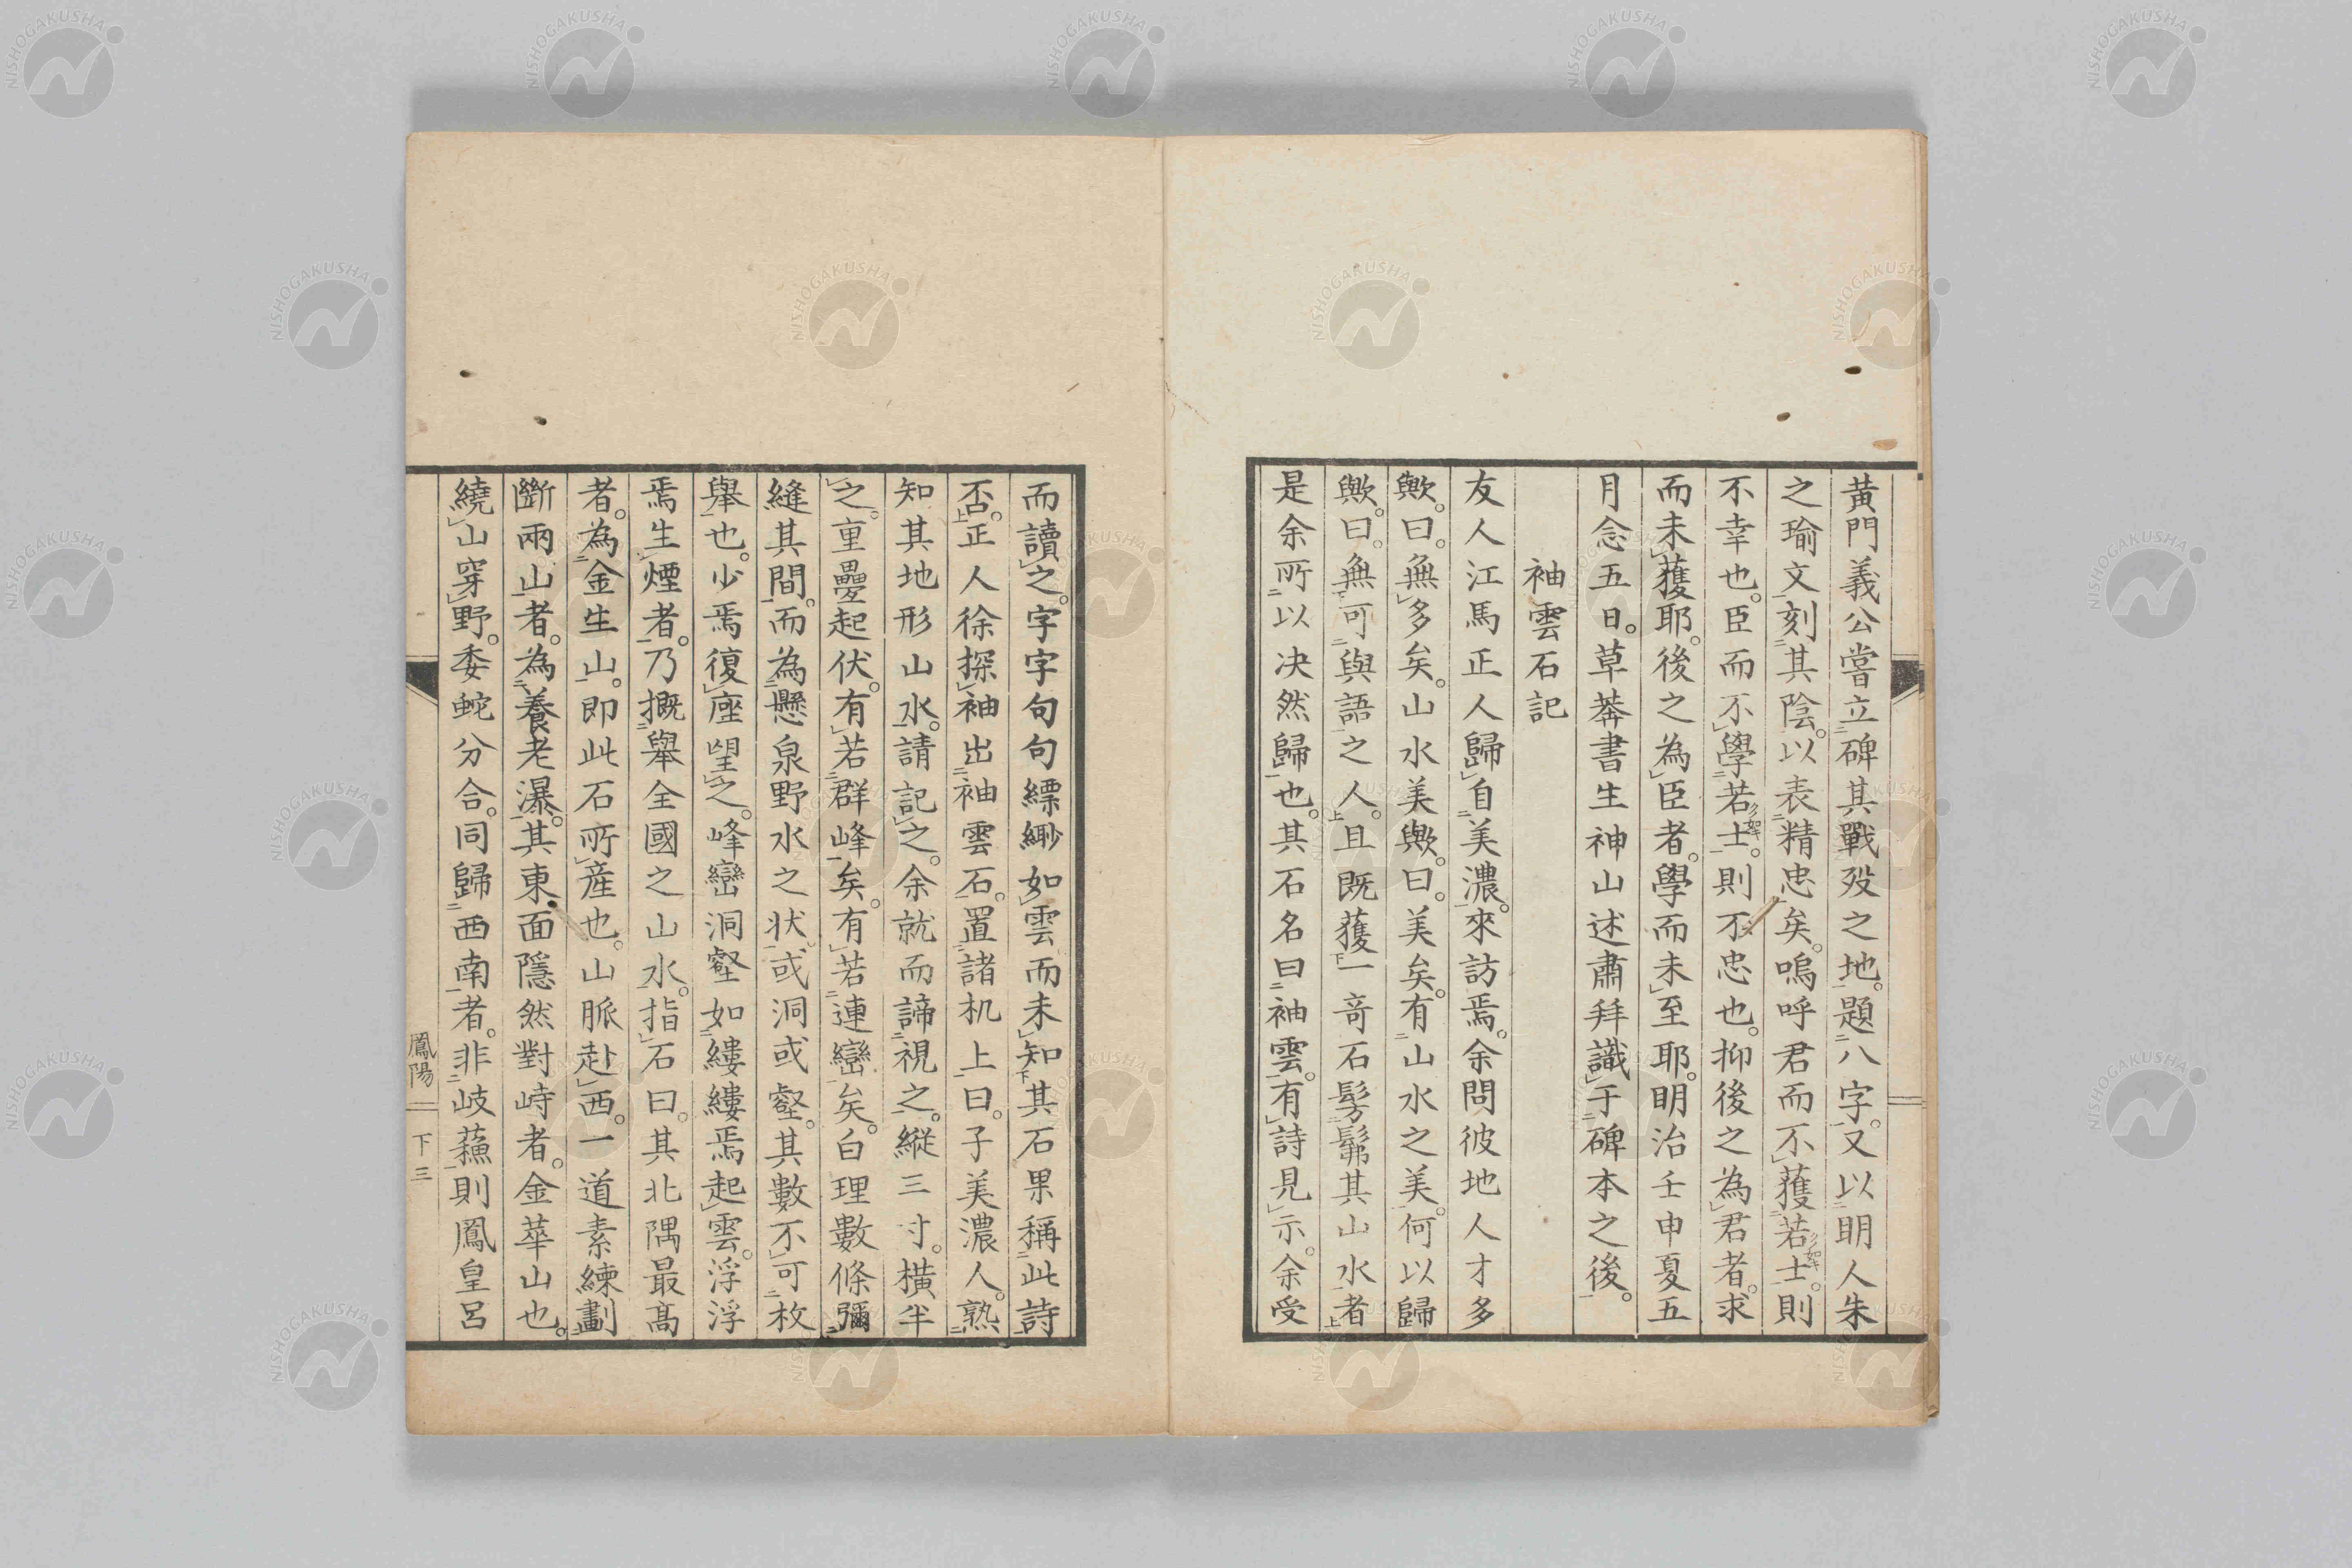 黃門義公嘗立碑其戰歿之地。題八字。又以明人朱
之瑜文刻其陰。以表精忠矣。嗚呼君而不獲若士。則
不幸也。臣而不學若士。則不忠也。抑後之為君者。求
而未獲耶。後之為臣者。學而未至耶。明治壬申夏五
月念五日。草莽書生神山述肅拜識于碑本之後。
袖雲石記
友人江馬正人歸自美濃。來訪焉。余問彼地人才多
歟。曰。無多矣。山水美歟。曰。美矣。有山水之美。何以歸
歟。曰。無可與語之人。且既獲一奇石髣髴其山水者
是余所以决然歸也。其石名曰袖雲。有詩見示。余受
而讀之。字字句句縹緲如雲而未知其石果稱此詩
否。正人徐探袖出袖雲石。置諸机上曰。子美濃人。熟
知其地形山水。請記之。余就而諦視之。縱三寸。橫半
之。重疊起伏。有若群峰矣。有若連巒矣。白理數條彌
縫其間。而為懸泉野水之状或洞或壑。其數不可枚
舉也。少焉復座望之。峰巒洞壑如縷縷焉起雲。浮浮
焉生煙者。乃概舉全國之山水。指石曰。其北隅最高
者。為金生山。即此石所產也。山脈赴西。一道素練劃
斷兩山者。為養老瀑。其東面隱然對峙者。金華山也。
繞山穿野。委蛇分合。同歸西南者。非岐蘓則鳳皇呂
鳳陽
下三
NISHOGAKUSHA